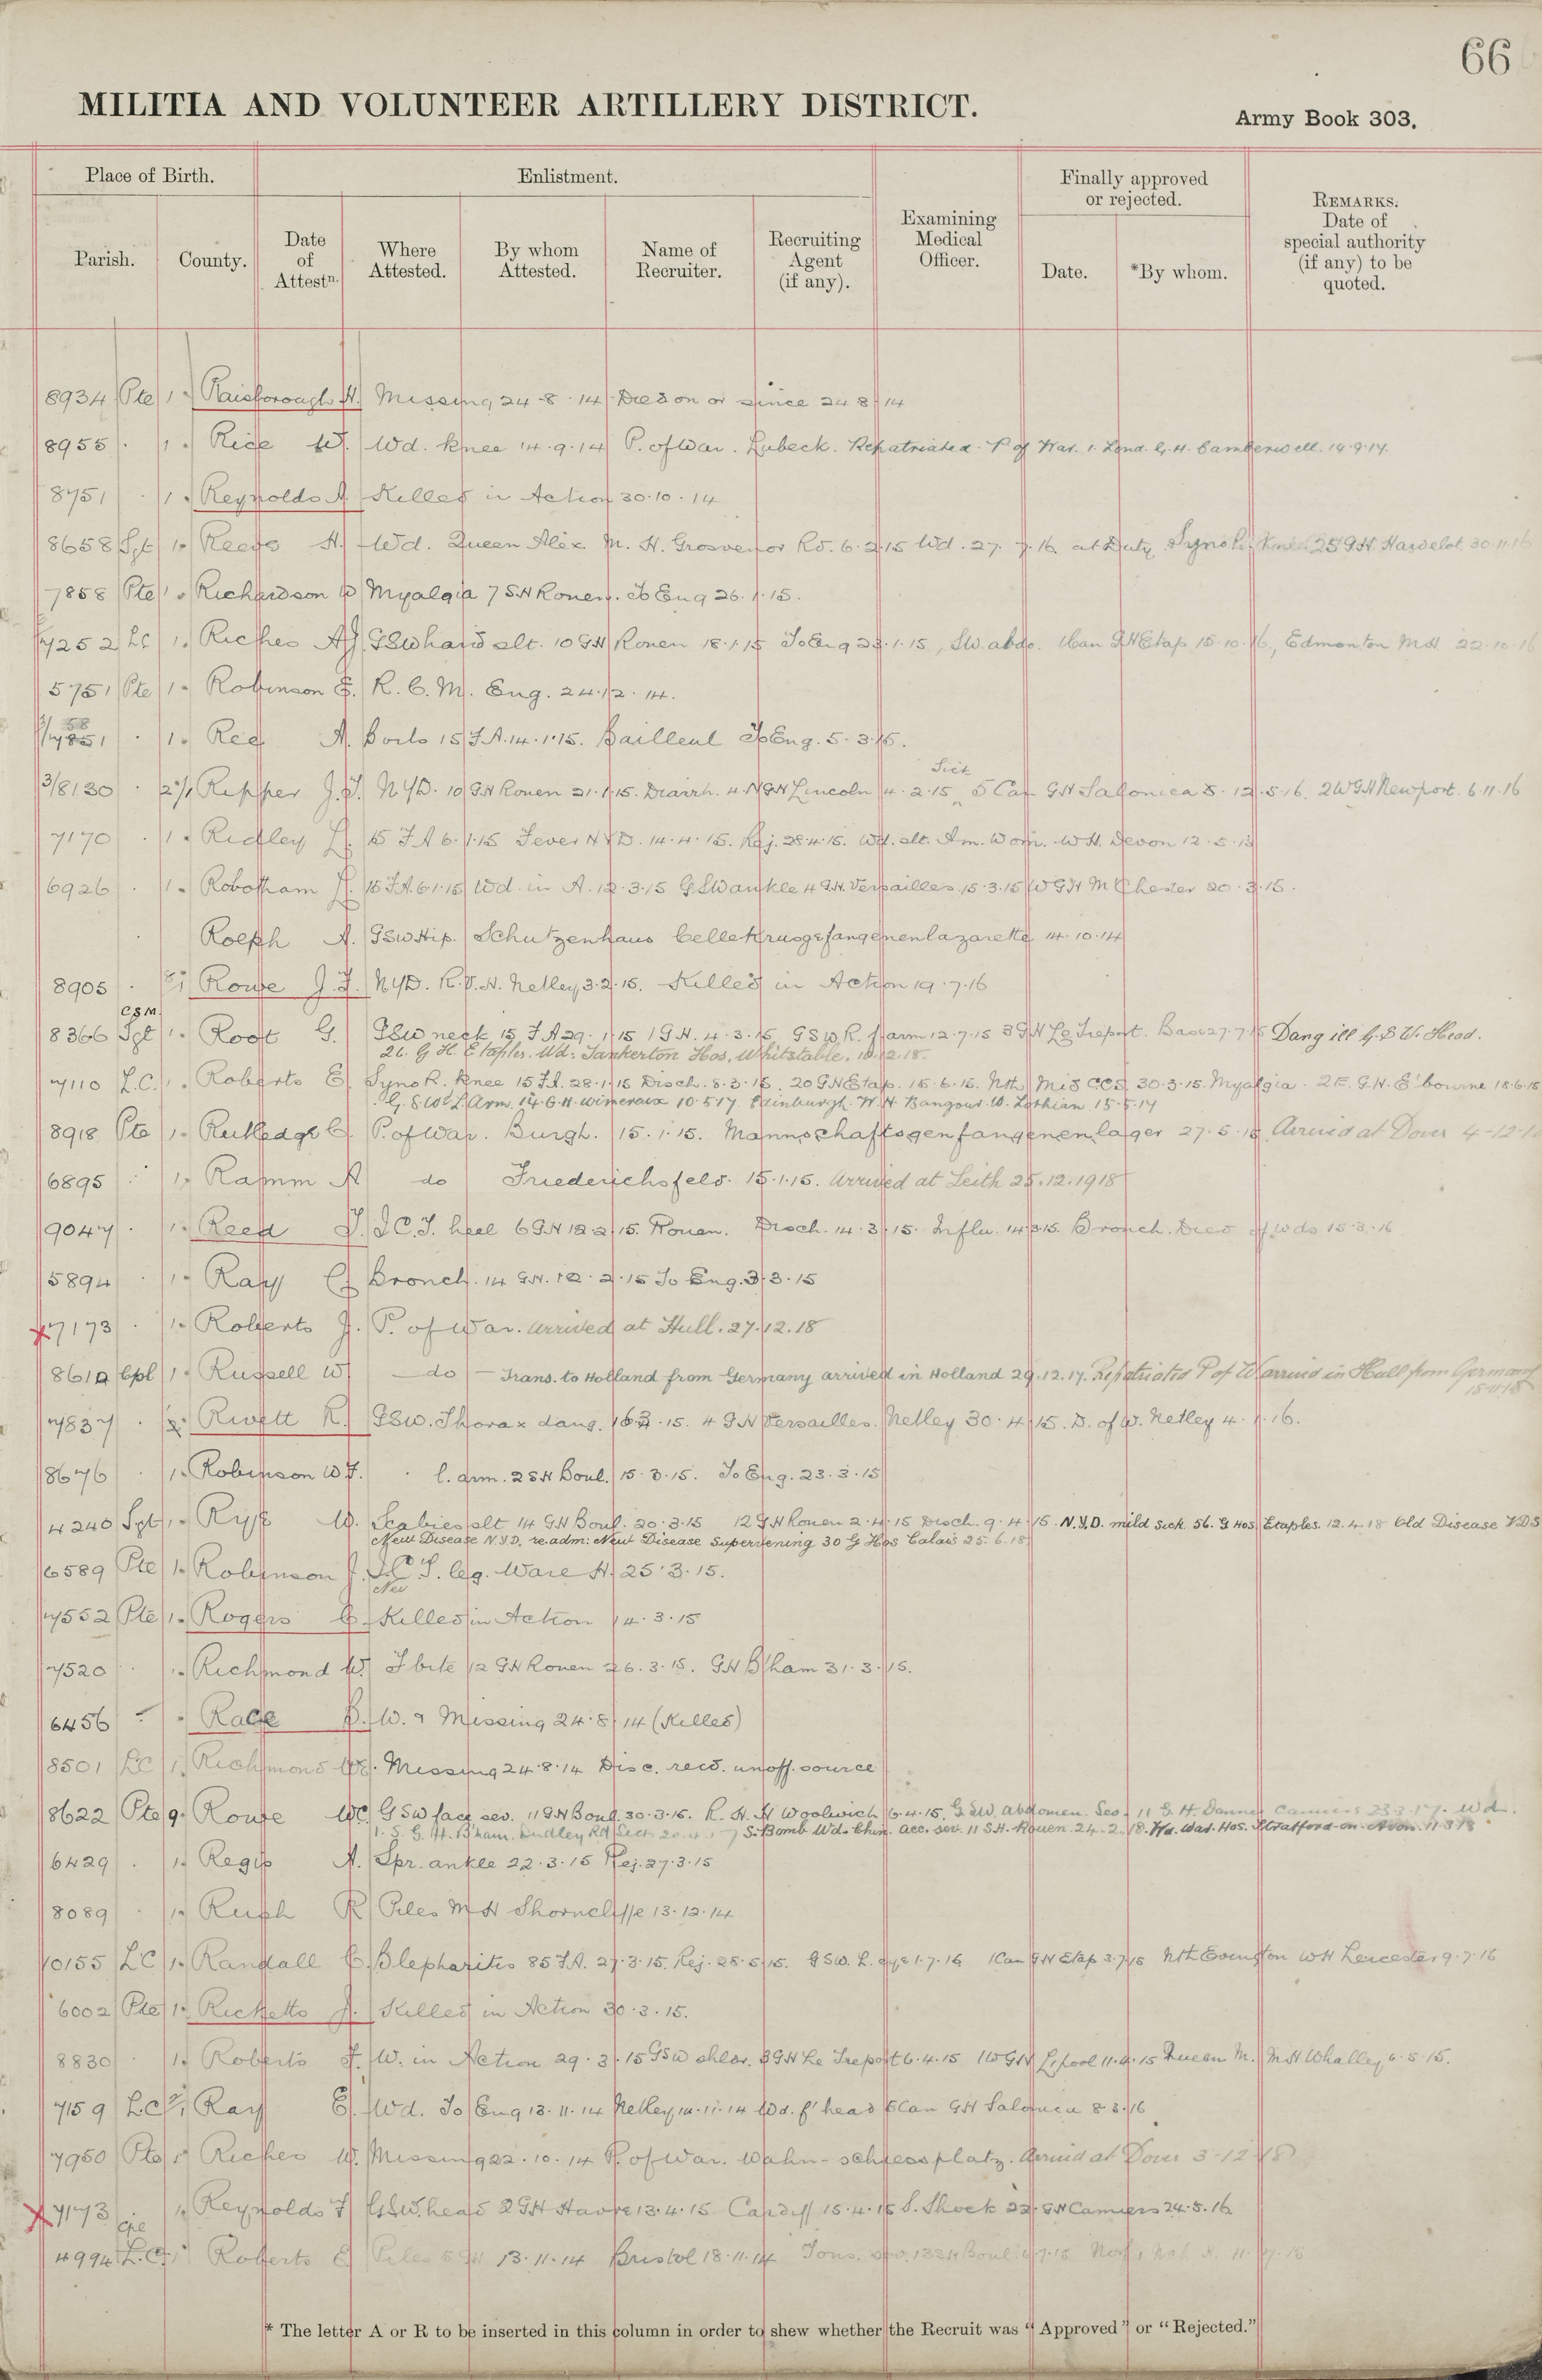 66
MILITIA AND VOLUNTEER ARTILLERY DISTRICT.
Army Book 303.
Place of Birth.
Enlistment.
Finally approved
or rejected.
REMARKS.
Date of
special authority
(if any) to be
quoted.
Parish.
County.
Date
of
Attestn.
Where
Attested.
By whom
Attested.
Name of
Recruiter.
Recruiting
Agent
(if any).
Examining
Medical
Officer.
Date.
*By whom.
8934 Pte 1 Raisborough H. Missing 24-8-14 Died on or since 24 8 14
8955 . 1 Rice W. Wd. Knee 14.9.14 P. of War. Lubeck. Repatriated. P of War. 1. Lond. G.H. Camberwell. 19.9.17.
8751 . 1 Reynolds A. Killed in Action 30.10.14
8658 Sgt 1 Reeve H. Wd. Queen Alex M. H. Grosvenor Rd. 6.2.15 Wd. 27.7.16. at Duty Syno Knee 25 GH. Hardelot. 30.11.16
7858 Pte 1 Richardson Myalgia 7 SH Rouen. To Eng 26.1.15.
7252 LC 1 Riches AJ GSW hand slt. 10 GH Rouen 18.1.15 To Eng 23.1.15, SW. abdo. 1 Can GH Etap 15.10.16, Edmonton MH 22.10.16
5751 Pte 1 Robinson R.C.M. Eng. 24.12.14.
1 Ree A. Boils 15 F.A. 14.1.15. Bailleul To Eng. 5.3.15.
3/8130 . 2/1 Repper J.J. NYD. 10 GH Rouen 21.1.15. Diarrh. 4 NGH Lincoln 4.2.15, Sick 5 Can GH Salonica 8-12.5.16. 2WGH Newport. 6.11.16
7170 . 1 Ridley H. 15 FA 6.1.15 Fever NYD. 14.4.15. Rej. 28.4.15. Wd. slt. Am. Wom. WH. Devon 12.5.15
6926 . 1 Robotham H. 15 FA 6.1.15 Wd. in A. 12.3.15 GSW ankle 4 GH. Versailles 15.3.15 WGH M Chester 20.3.15.
Rolph A. GSW Hip. Schutzenhaus Celle Kriegsgefangenenlazarette 14.10.14
8905 . Rowe J.F. NYD. R.V.H. Netley 3.2.15. Killed in Action 19.7.16
C.S.M.
8366 Sgt 1 Root G. GSW neck 15 FA 29.1.15 1 GH. 4.3.15 GSW R. farm 12.7.15 3 GH Le Treport. Base 27.7.15 Dang ill G.S.W. Head.
26. G H. Etaples. Wd: Tankerton Hos, Whitstable. 10.12.18.
7110 L.C. 1 Roberts E. Syno R. Knee 15 FA. 28.1.15 Disch. 8.3.15. 20 GH Etap. 15.6.15. Nth Mid CCS 30.3.15. Myalgia. 2E. G.H. E'bourne 18.6.15
G.S.W. L. Arm. 14. G.H. Wimereux 10.5.17. Edinburgh. W.H. Bangour W. Lothian 15.5.17
8918 Pte 1 Rutledge C. P. of War. Burgh. 15.1.15. Mannschaftsgenfangenenlager 27.5.15 Arrived at Dover 4-12-18
6895 . 1 Ramm A do Friederichsfeld. 15.1.15. Arrived at Leith 25.12.1918
9047 . 1 Reed J. I.C.T. heel 6 GH 12.2.15. Rouen. Disch. 14.3.15. Influ. 14.3.15. Bronch. Died of wds 15.3.16
5894 . 1 Ray C Bronch. 14 GH. 12.2.15 To Eng. 3.3.15
x 7173 . 1 Roberts J. P. of War. Arrived at Hull. 27.12.18
8610 Cpl 1 Russell W do — Trans. to Holland from Germany arrived in Holland 29.12.17. Repatriated P of W arrived in Hull from Germany
18.11.18
7837 . Rivett R. GSW. Thorax dang. 16.3.15. 4 GH Versailles. Netley 30.4.15. D. of W. Netley 4.1.16.
8676 . 1 Robinson W.F. . l. arm. 2 SH Boul. 15.3.15. To Eng. 23.3.15
4240 Sgt 1 Rye W. Scabies slt 14 GH Boul. 20.3.15 12 GH Rouen 2.4.15 Disch. 9.4.15. N.Y.D. mild Sick 56. G Hos Etaples. 12.4.18 Old Disease VDS
New Disease N.Y.D. re.adm: New Disease Supervening 30 G Hos Calais 25.6.18
6589 Pte 1 Robinson J. I.C.T. leg. Ware H. 25.3.15.
7552 Pte 1 Rogers C. Killed in Action 14.3.15
7520 . 1 Richmond W. F bite 12 GH Rouen 26.3.15. GH B'ham 31.3.15.
6456 . Race B. W. & Missing 24.8.14 (Killed)
8501 LC 1 Richmond Missing 24.8.14 Disc. recd. unoff. source
8622 Pte 9 Rouse WC. GSW face sev. 11 GH Boul. 30.3.15. R.H.H Woolwich 6.4.15. GSW. abdomen. Sev. 11 G.H. Dannes Camiers 23.3.17. Wd.
1.S.G.H. B'ham. Dudley Rd Sect 20.4.17 S. Bomb Wd. Chin. acc. sev. 11 S.H. Rouen. 24.2.18. Wd. War. Hos. Stratford-on-Avon. 11.3.18.
6429 . 1 Regis A. Spr. ankle 22.3.15 Rej. 27.3.15
8089 . 1 Rush R Piles MH Shorncliffe 13.12.14
10155 LC 1 Randall C. Blepharitis 85 FA. 27.3.15. Rej. 28.5.15. GSW. L. eye 1.7.16 1 Can GH Etap 3.7.16 Nth Evington WH Leicester 9.7.16
6002 Pte 1 Ricketts J. Killed in Action 30.3.15.
8830 . 1 Roberts F. W. in Action 29.3.15 GSW shldr. 3 GH Le Treport 6.4.15 1WGH L'pool 11.4.15 Queen M. MH Whalley 6.5.15.
7159 L.C. Ray E. Wd. To Eng 13.11.14 Netley 14.11.14 Wd. f'head 5 Can GH Salonica 8.3.16
7950 Pte Riches W. Missing 22.10.14 P. of War. Wahn-schiessplatz. Arrived at Dover 3-12-18
x 7173 1 Reynolds F GSW. head 2 GH Havre 13.4.15 Cardiff 15.4.15 S. Shock 22. GH Camiers 24.5.16
4994 L.C. 1 Roberts E Piles 13.11.14 Bristol 18.11.14
* The letter A or R to be inserted in this column in order to shew whether the Recruit was "Approved" or "Rejected."